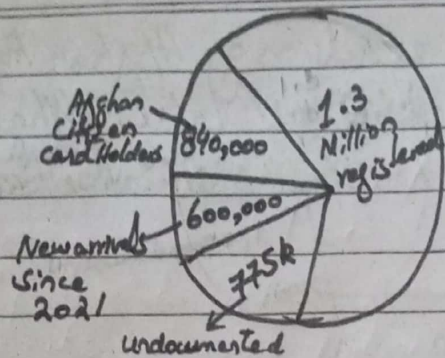 Afghan
Citizen
Card Holders
840,000
1.3
Million
registered
600,000
New arrivals
Since
2021
775k
undocumented